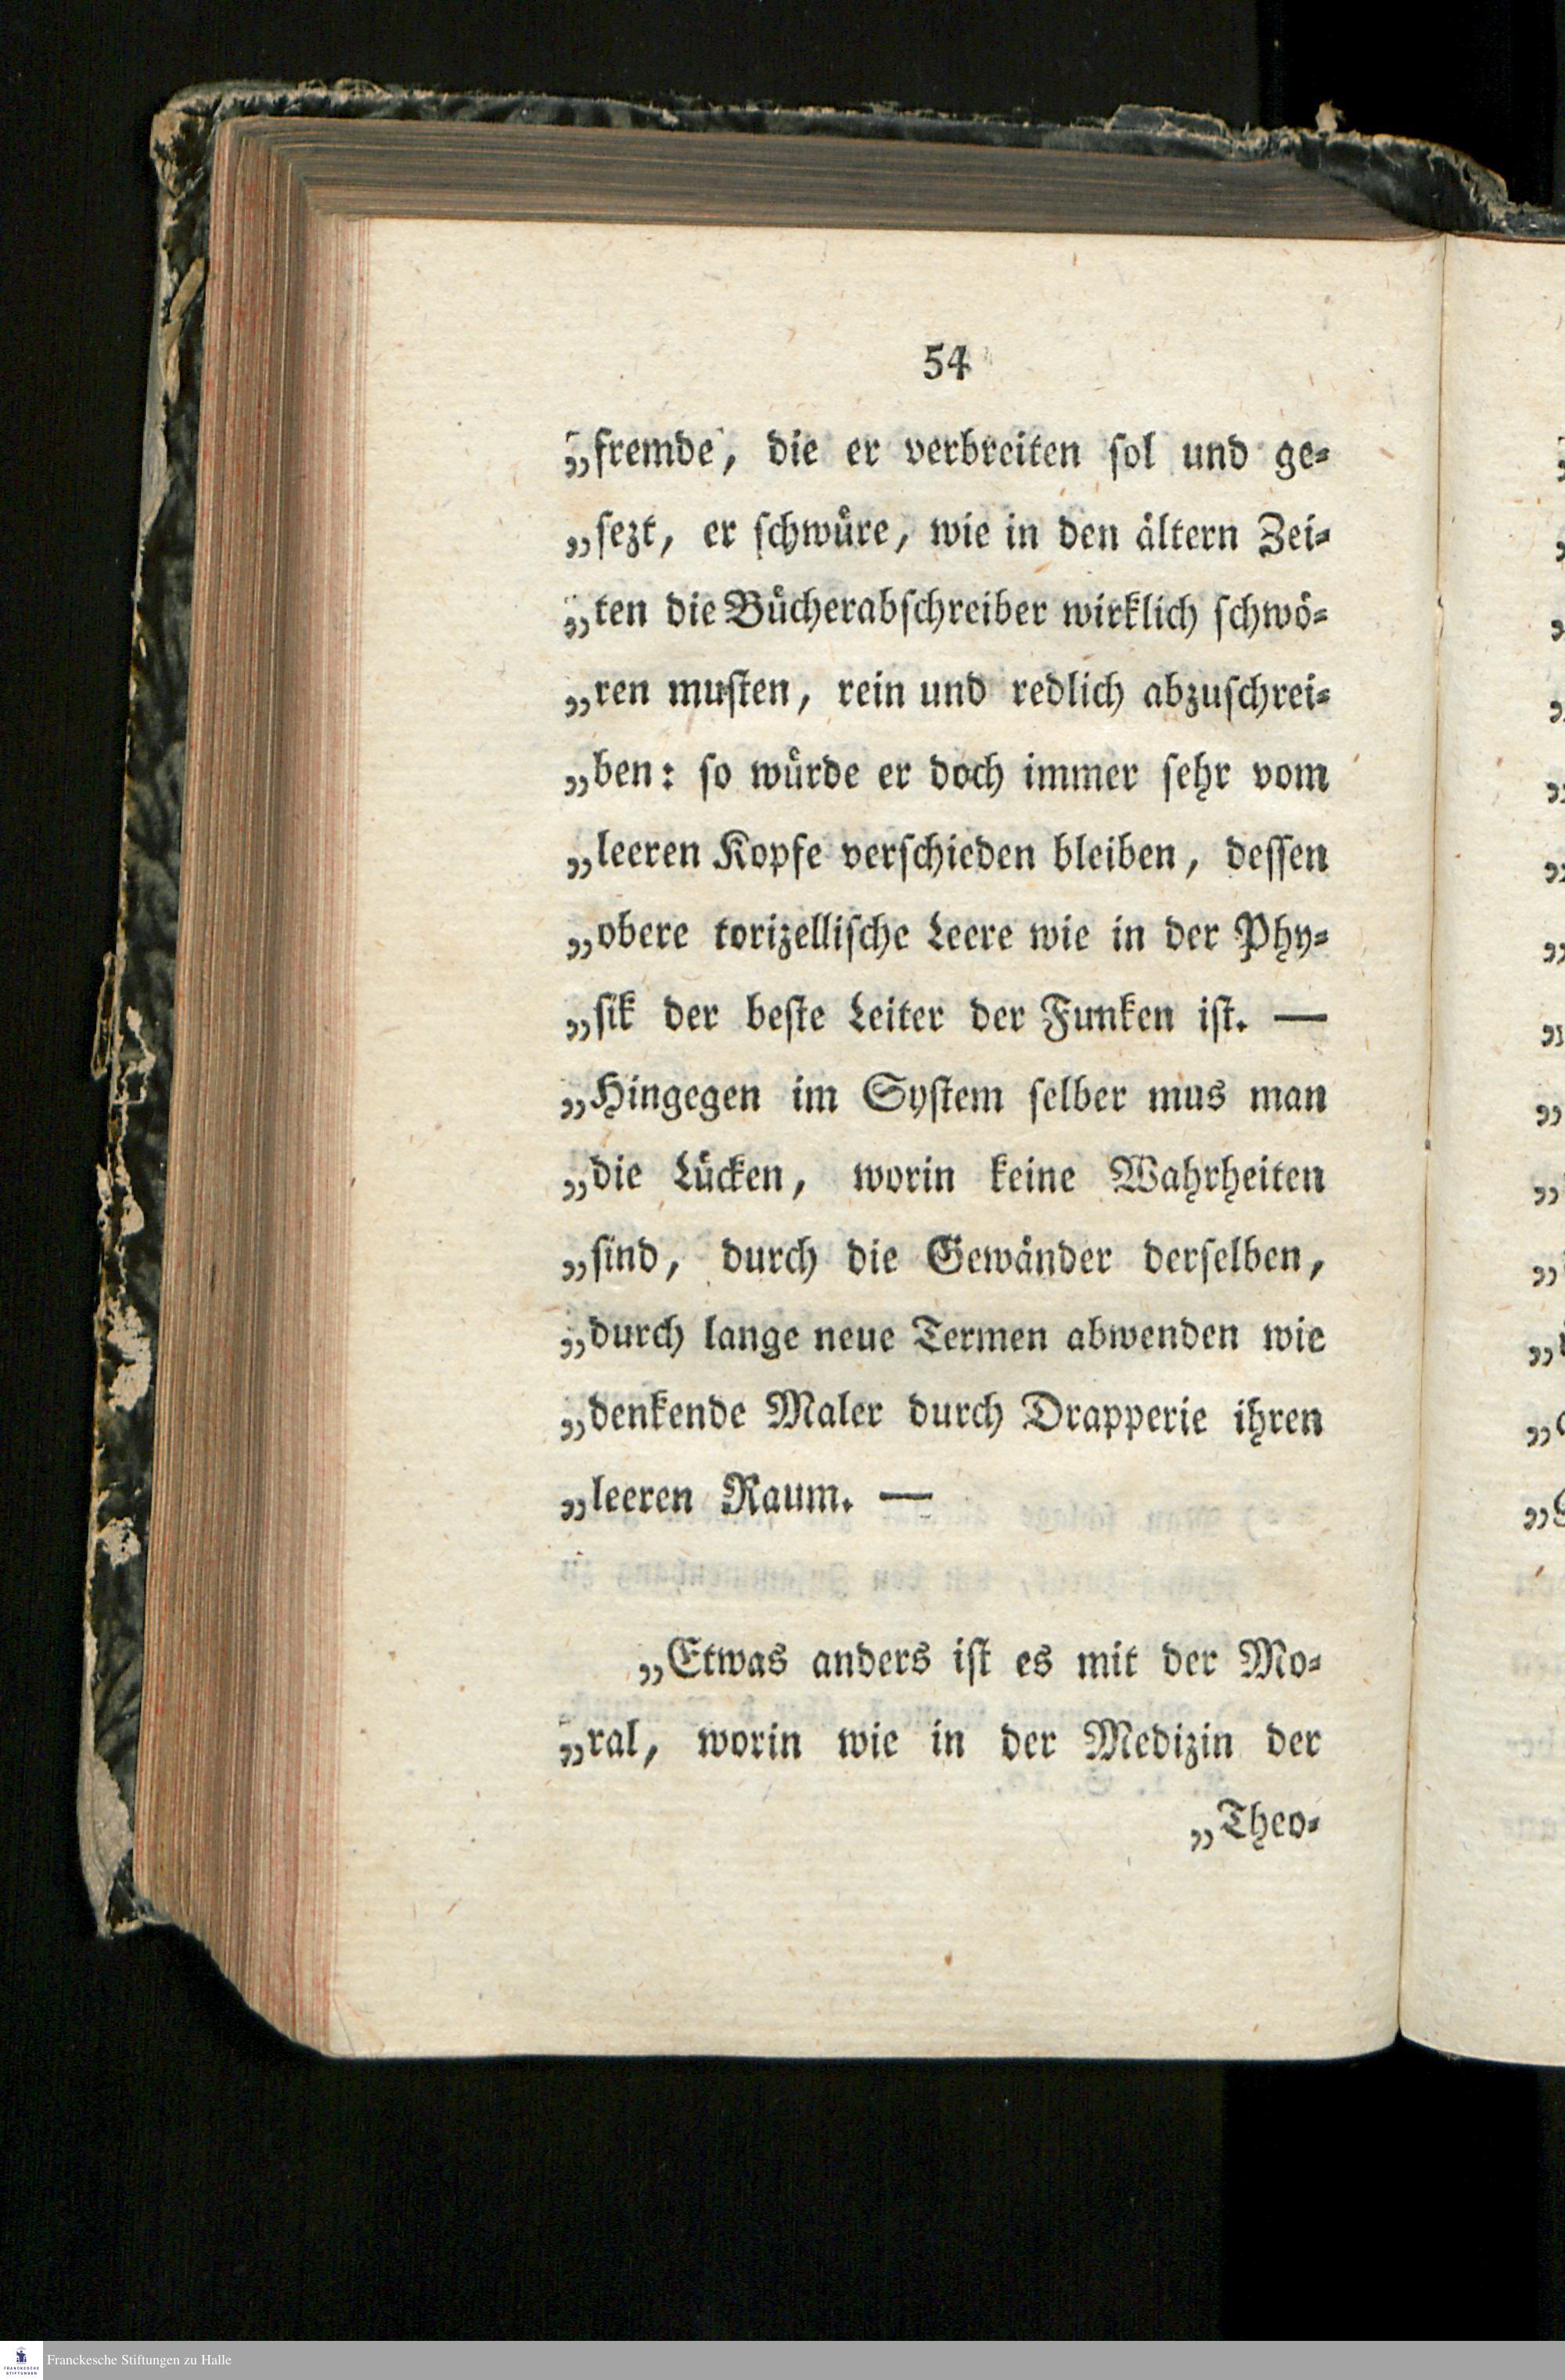 54
„fremde, die er verbreiten ſol und ge⸗
„ſezt, er ſchwuͤre, wie in den aͤltern Zei⸗
„ten die Buͤcherabſchreiber wirklich ſchwoͤ⸗
„ren muſten, rein und redlich abzuſchrei⸗
„ben: ſo wuͤrde er doch immer ſehr vom
„leeren Kopfe verſchieden bleiben, deſſen
„obere torizelliſche Leere wie in der Phy⸗
„ſik der beſte Leiter der Funken iſt. —
„Hingegen im Syſtem ſelber mus man
„die Luͤcken, worin keine Wahrheiten
„ſind, durch die Gewaͤnder derſelben,
„durch lange neue Termen abwenden wie
„denkende Maler durch Drapperie ihren
„leeren Raum. —
„Etwas anders iſt es mit der Mo⸗
„ral, worin wie in der Medizin der
„Theo⸗
FRANCKESCHE
STIFTUNGEN
Franckesche Stiftungen zu Halle